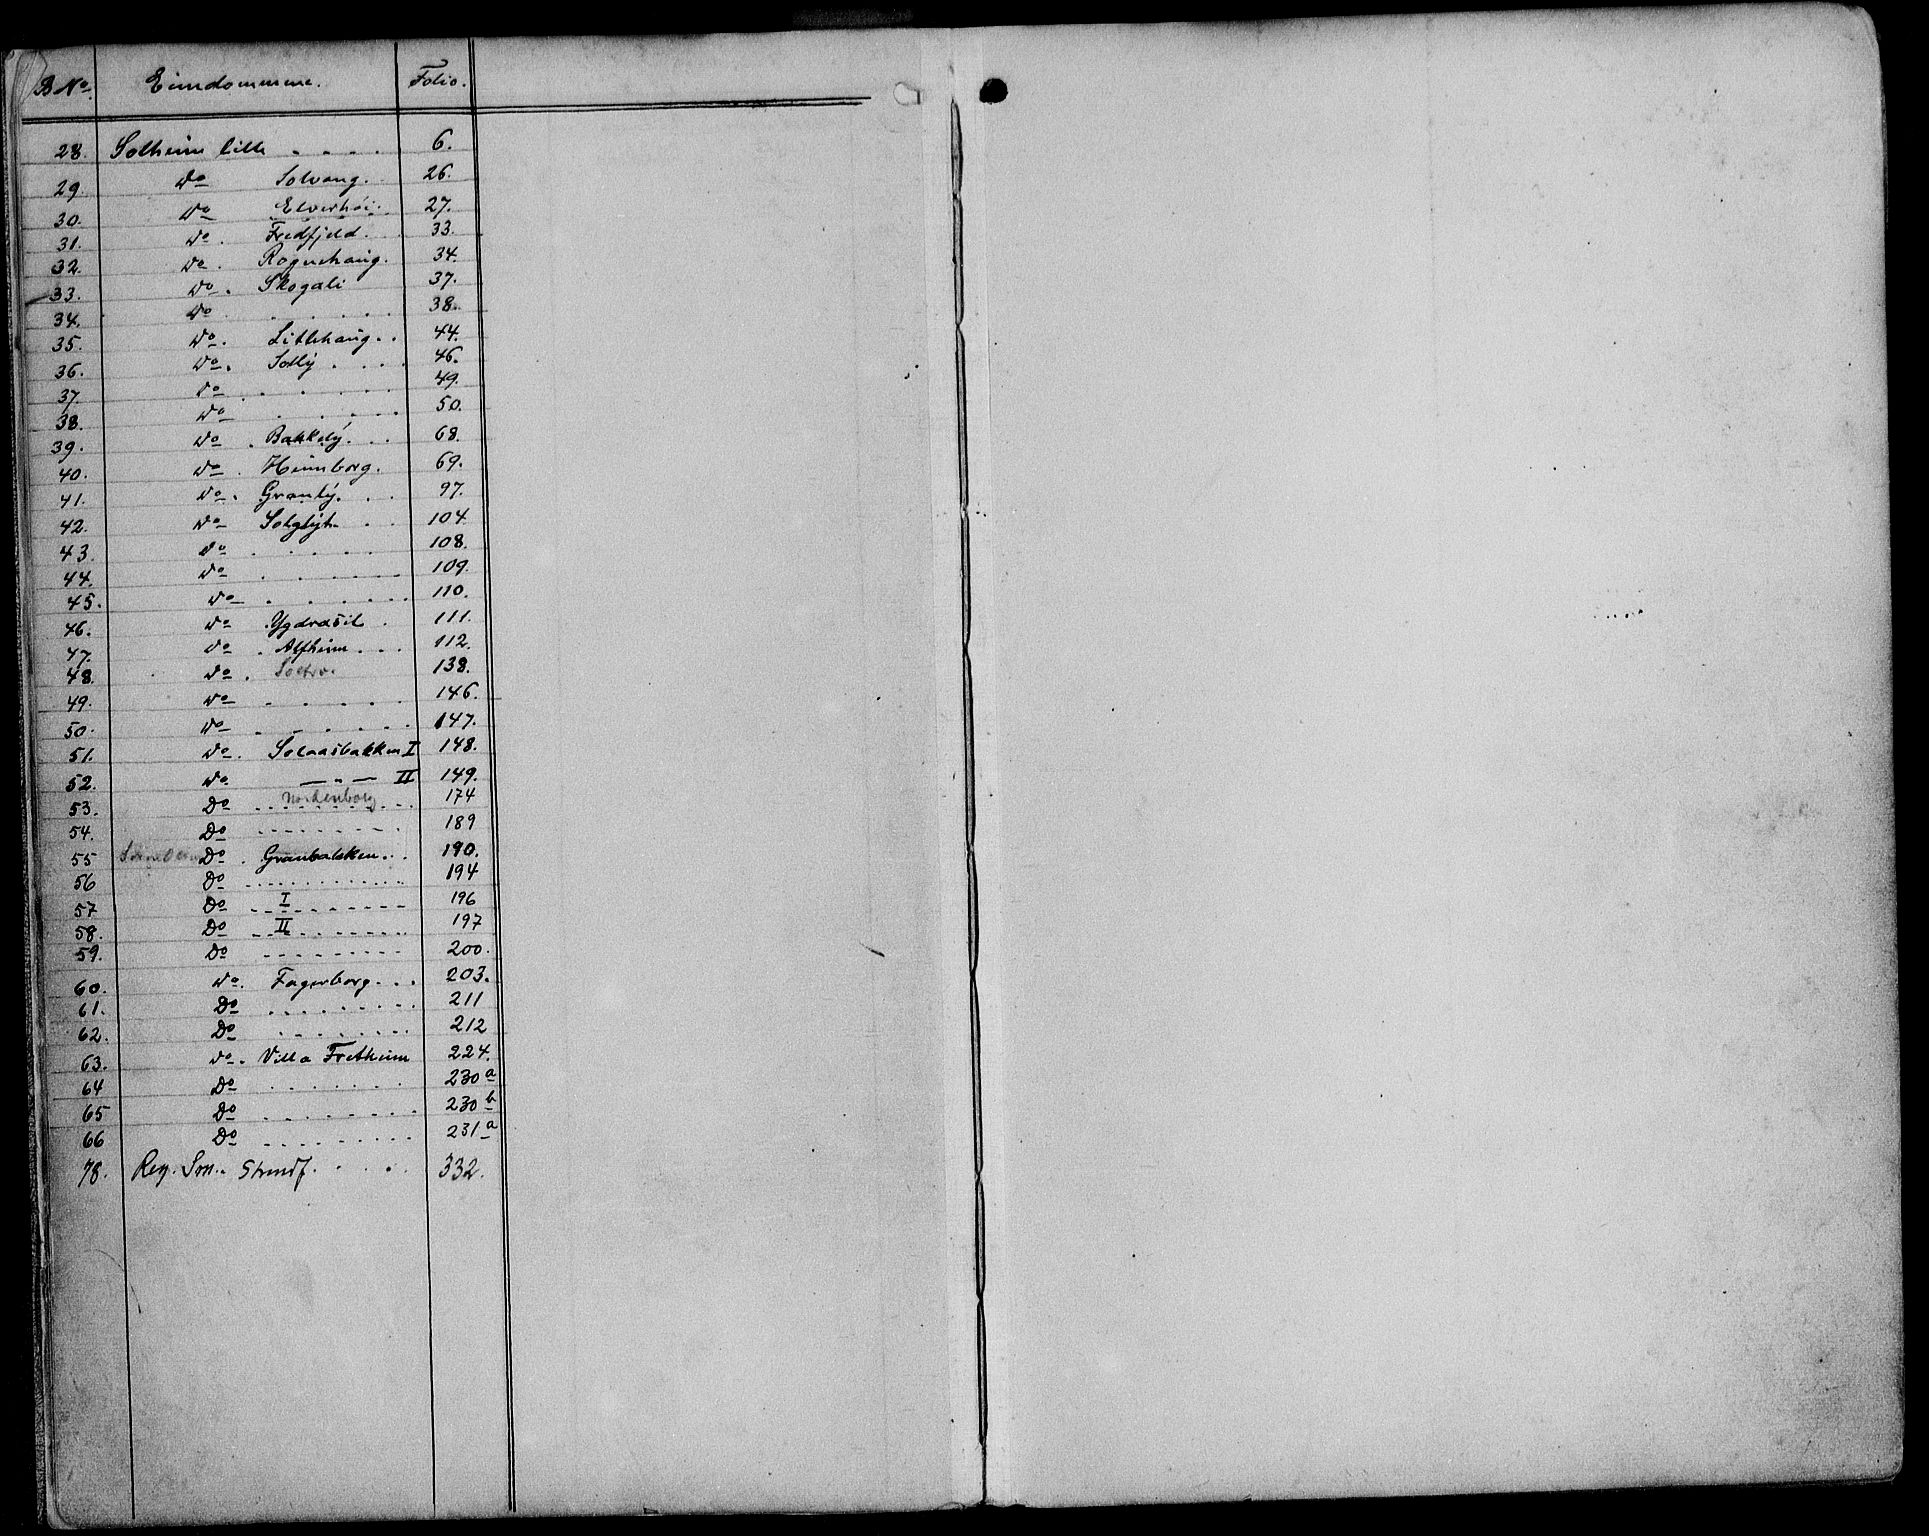 B No. Eiendommene. Folio.
28. Solheim lille . . . . 6.
29. do Solvang. 26.
30. do Elverhøi. 27.
31. do . Fredfjeld. 33.
32. do . Rognehaug. 34.
33. do . Skogali 37.
34. do . . . . . . 38.
35. do . Litlehaug. . 44.
36. do . Solly . . . . 46.
37. do . . . . . . 49.
38. do . . . . . 50.
39. do . Bakkely. . . 68.
40. do . Heimborg. 69.
41. do . Granly. . . 97.
42. do Solglytt . . 104.
43. do . . . . . 108.
44. do . . . . . . 109.
45. do . . . . . . 110.
46. do . Ygdrasil . 111.
47. do . Alfheim . . . 112.
48. do . Soltro. 138.
49. do . . . . . 146.
50. do . . . . . 147.
51. do . Solaasbakken I 148.
52. do — " — II 149.
53. Do Nordenborg 174
54. Do . . . . . . . . 189
55 Do . Granbakken. . . 190.
56 Do . . . . . . . . . . 194
57 Do I . . . . . . . . 196
58. Do II . . . . . . . . 197
59. Do . . . . . . . . . 200.
60. do . Fagerborg . . . 203.
61. Do . . . . . . . . 211
62. Do . . . . . . . . 212
63. do . Villa Fretheim 224.
64 Do . . . . . . . 230 a
65 Do . . . . . . . . 230 b
66 Do . . . . . . . . 231 a
78. Reg. Son. Strandf. . . . . 332.